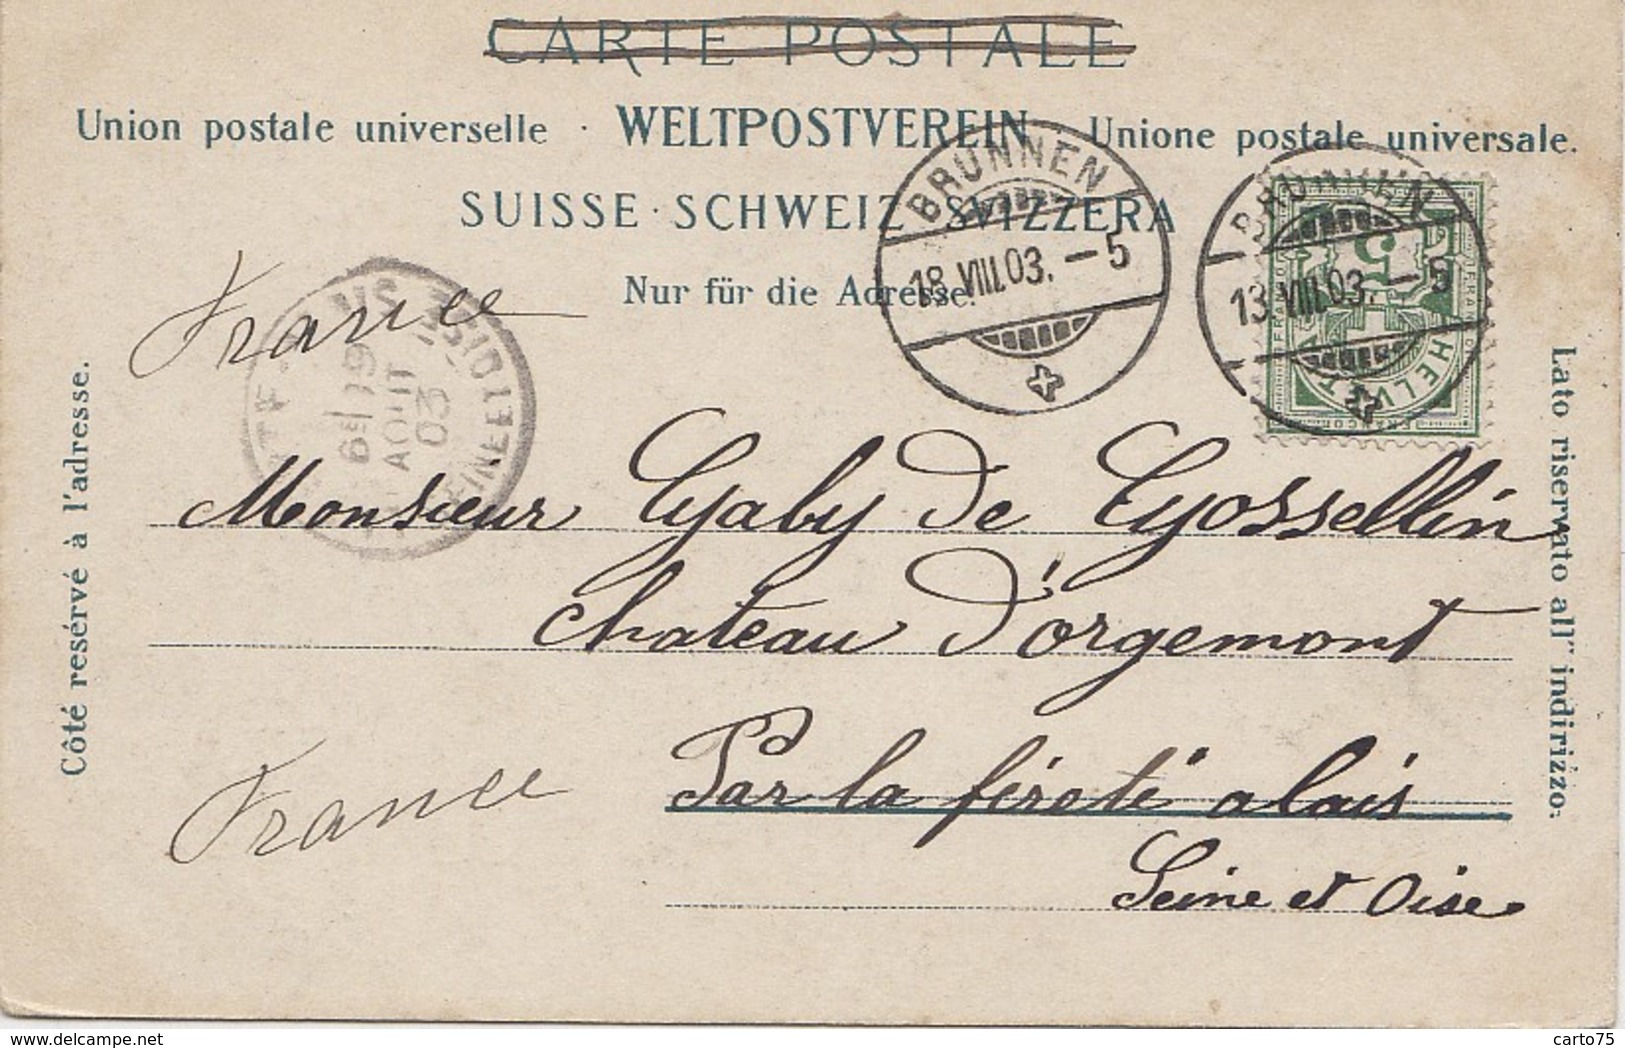 CARTE POSTALE
Union postale universelle · WELTPOSTVEREIN · Unione postale universale.
SUISSE · SCHWEIZ · SVIZZERA
Nur für die Adresse.
BRUNNEN
18.VIII.03. – 5
BRUNNEN
13.VIII.03. – 5
5
HELVETIA
France
AOUT
03
SEINE ET OISE
Côté resérvé à l'adresse.
Lato riservato all' indirizzo.
Monsieur Gaby de Gossellin
Chateau d'orgemont
Par la fireté alais
Seine et Oise
France
carto75